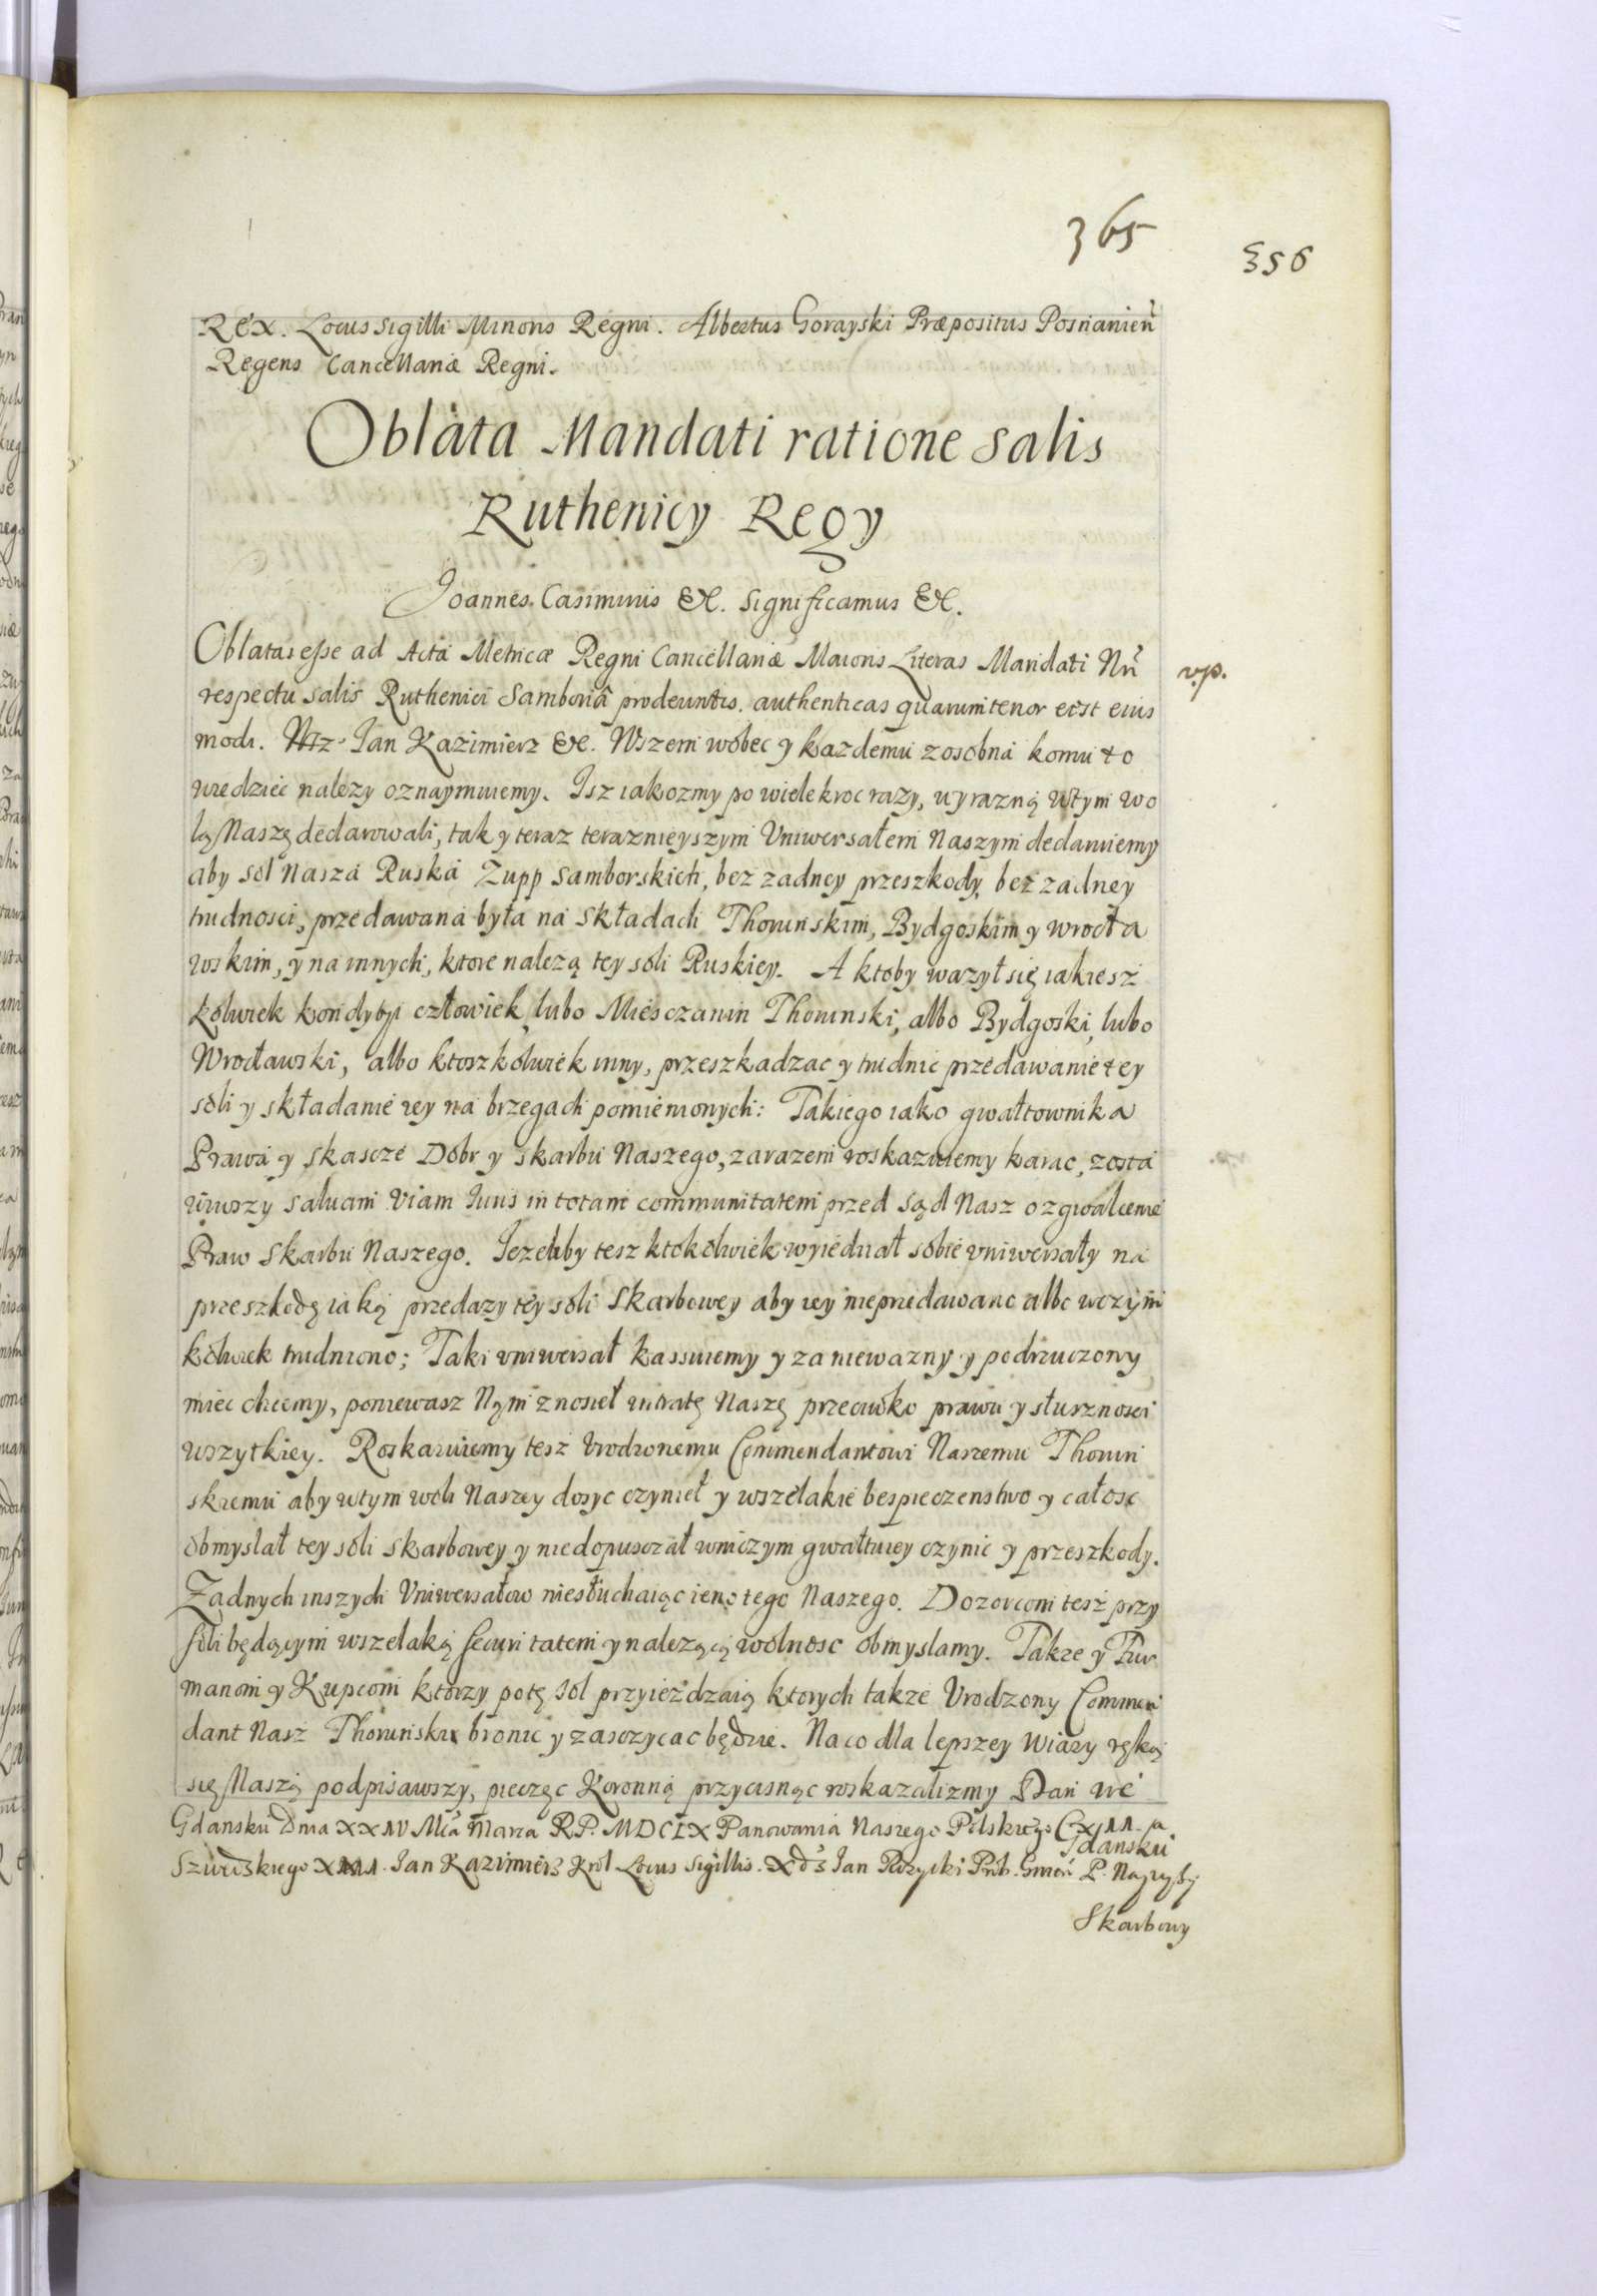 365
356
Rex. Locus Sigilli Minoris Regni. Albertus Gorayski Præpositus Posnanien̄
Regens Cancellariæ Regni.
Oblata Mandati ratione Salis
Ruthenicy Regy
Joannes Casimirus &c. Significamus &c.
Oblatas esse ad Acta Metricæ Regni Cancellariæ Maioris Literas Mandati Nr̄i
v.p.
respectu salis Ruthenici Samboriâ prodeuntis. authenticas quarum tenor est eius
modi. Jan Kazimierz &c. Wszem wobec y kazdemu zosobna komu to
wiedziec nalezy oznaymuiemy. Isz iakozmy po wielekroc razy, wyrazną wtym wo
lą Naszę declarowali, tak y teraz teraznieyszym Vniwersałem Naszym declaruiemy
aby sol Nasza Ruska Zupp Samborskich, bez zadney przeszkody, bez zadney
trudnosci, przedawana była na składach Thorunskim, Bydgoskim y wrocła
wskim, y na innych, ktore nalezą tey soli Ruskiey. A ktoby wazył się iakiesz
kolwiek kondytyi człowiek, lubo Miesczanin Thorunski, albo Bydgoski, lubo
Wrocławski, albo ktoszkolwiek inny, przeszkadzac y trudnic przedawanie tey
soli y składanie iey na brzegach pomienionych: Takiego iako gwałtownika
Prawa y skascze Dobr y skarbu Naszego, zarazem roskazuiemy karac, zosta
wiwszy saluam viam Iuris in totam communitatem przed sąd Nasz o zgwalcenie
Praw Skarbu Naszego. Iezeliby tesz ktokolwiek wyiednał sobie vniwersały na
przeszkodę iaką przedazy tey soli Skarbowey aby iey nieprzedawano albo wczym
kolwiek trudniono; Taki vniwersał kassuiemy y za niewazny y podrzuczony
miec chcemy, poniewasz Nym znosieł intratę Naszę przeciwko prawu y słusznosci
wszytkiey. Roskazuiemy tesz Vrodzonemu Commendantowi Naszemu Thorun
skiemu aby wtym woli Naszey dosyc czynieł y wszelakie bespieczenstwo y całosc
obmyslał tey soli Skarbowey y niedopusczał wniczym gwałtu iey czynic y przeszkody.
Zadnych inszych Vniwersałow niesłuchaiąc ieno tego Naszego. Dozorcom tesz przy
soli będącym wszelaką securitatem y nalezącą wolnosc obmyslamy. Takze y Fur
manom y Kupcom ktorzy potę sol przyiezdzaią ktorych takze Vrodzony Commen
dant Nasz Thorunski bronic y zasczycac będzie. Na co dla lepszey wiary ręką
się Naszą podpisawszy, pieczęc Koronną przycisnąc roskazalizmy Dan we
Gdansku Dnia XXIV Mca Marca R.P. MDCLX Panowania Naszego Polskiego
Gdansku
Szwedzkiego Jan Kazimierz Krol Locus Sigillis. Jan P. Nayzszy
Skarbowy